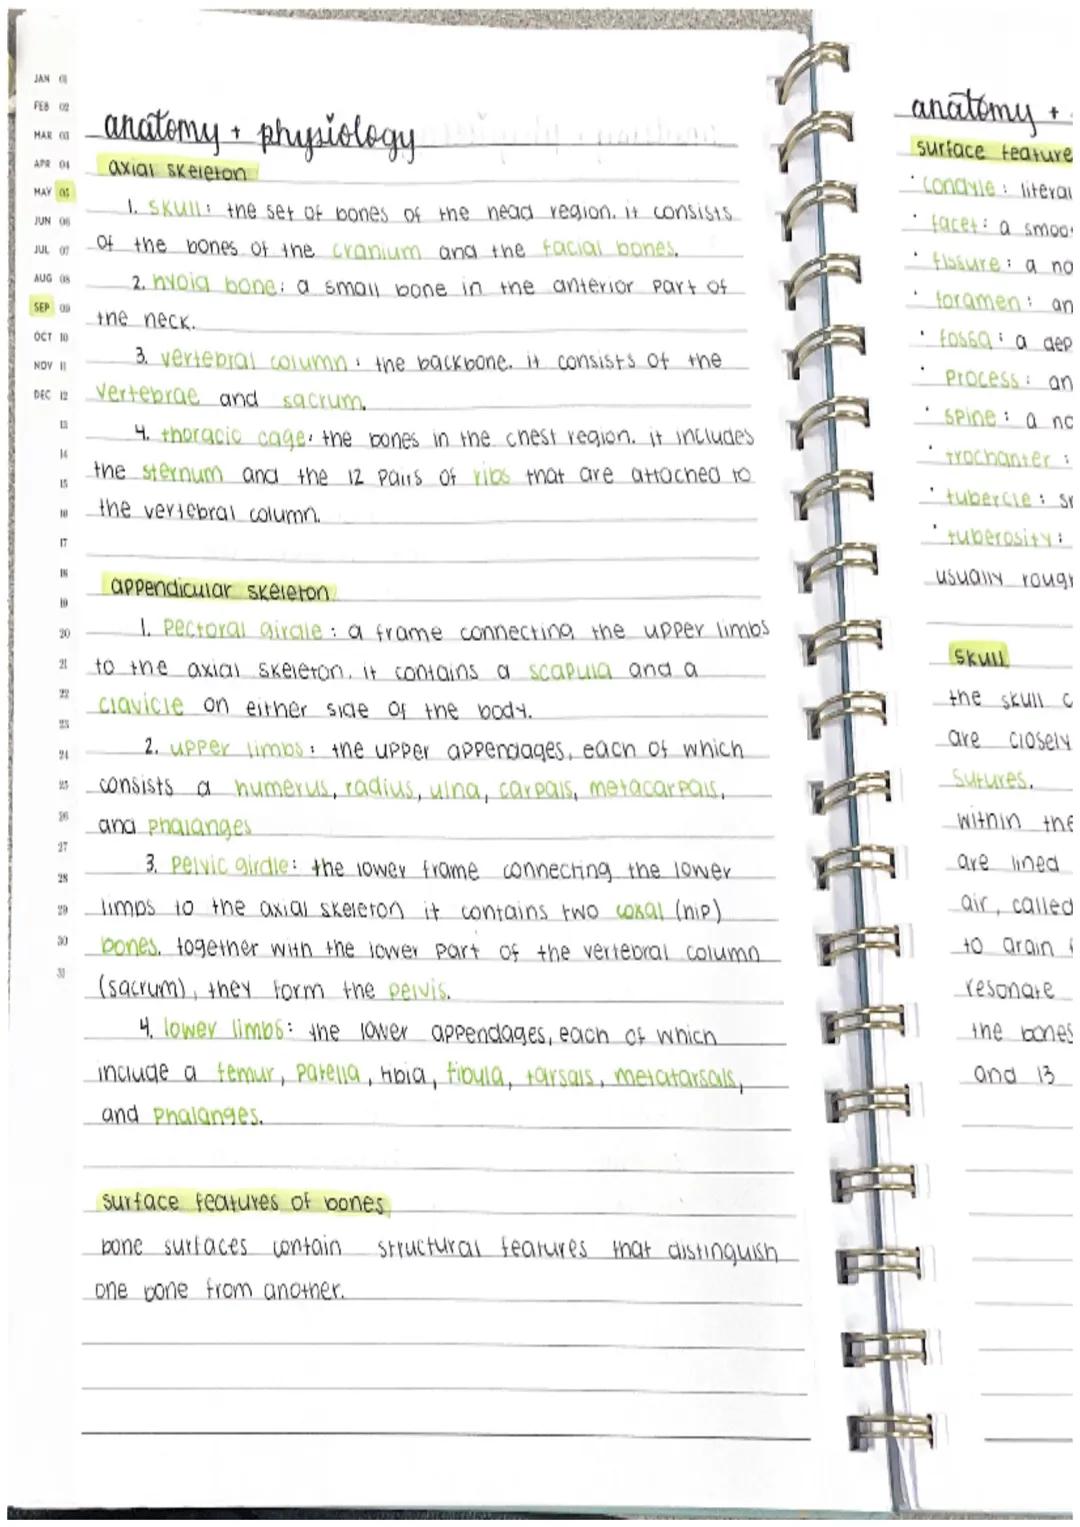 JAN 01
FEB 02
MAR 03
APR 04
MAY 05
JUN 06
JUL 07
AUG 08
SEP 09
OCT 10
NOV 11
DEC 12
13
14
15
16
17
18
19
20
21
22
23
24
25
26
27
28
29
30
31
anatomy + physiology
axial skeleton
1. skull: the set of bones of the head region. it consists
of the bones of the cranium and the facial bones.
2. hyoid bone: a small bone in the anterior part of
the neck.
3. vertebral column: the backbone. it consists of the
vertebrae and sacrum.
4. thoracic cage: the bones in the chest region. it includes
the sternum and the 12 pairs of ribs that are attached to
the vertebral column.
appendicular skeleton
1. pectoral girdle: a frame connecting the upper limbs
to the axial skeleton. it contains a scapula and a
clavicle on either side of the body.
2. upper limbs: the upper appendages, each of which
consists a humerus, radius, ulna, carpals, metacarpals,
and phalanges
3. pelvic girdle: the lower frame connecting the lower
limbs to the axial skeleton it contains two coxal (hip)
bones. together with the lower part of the vertebral column
(sacrum), they form the pelvis.
4. lower limbs: the lower appendages, each of which
include a femur, patella, tibia, fibula, tarsals, metatarsals,
and phalanges.
surface features of bones
bone surfaces contain structural features that distinguish
one bone from another.
anatomy +
surface feature
• condyle: litera
• facet: a smoo
• fissure: a no
• foramen: an
• fossa: a dep
• process: an
• spine: a no
• trochanter:
• tubercle: sm
• tuberosity:
usually rough
skull
the skull c
are closely
sutures.
within the
are lined
air, called
to drain
resonate
the bones
and 13